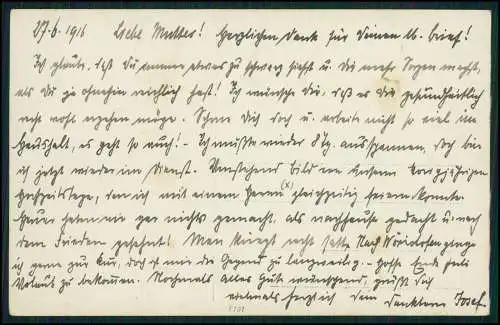 27.6.1916 Liebe Mutter! Herzlichen Dank für Deinen lb. Brief!
Ich glaube, daß Du immer etwas zu schwarz siehst u. Dir mehr Sorgen machst,
als Du ja ohnehin reichlich hast! Ich wünsche Dir, daß es Dir gesundheitlich
recht wohl ergehen möge. Schone Dich doch u. arbeite nicht so viel im
Haushalt, es geht so auch! - Ich mußte wieder 8 Tg. ausspannen, doch bin
ich jetzt wieder im Dienst. Umstehend Bild von unserem
Hochzeitstage, den ich mit einem Herrn (x) gleichzeitig feiern konnte.
Heuer haben wir gar nichts gemacht, als nachhause gedacht u. nach
dem Frieden gesehnt! Man kriegt recht satt. Nach Wörishofen ginge
ich gerne zur Kur, doch ist mir die Gegend zu langweilig. - Hoffe Ende Juli
Urlaub zu bekommen. Nochmals alles Gute wünschend, grüßt Dich
vielmals herzlich Dein dankbarer Josef.